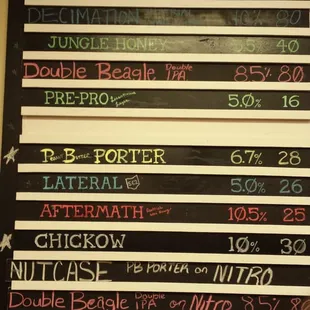 DECIMATION 10% 80
JUNGLE HONEY 5.5 40
Double Beagle Double IPA 8.5% 80
PRE-PRO 5.0% 16
P.B. PORTER 6.7% 28
LATERAL 5.0% 26
AFTERMATH 10.5% 25
CHICKOW 10% 30
NUTCASE PB PORTER on NITRO
Double Beagle Double IPA on Nitro 8.5% 80